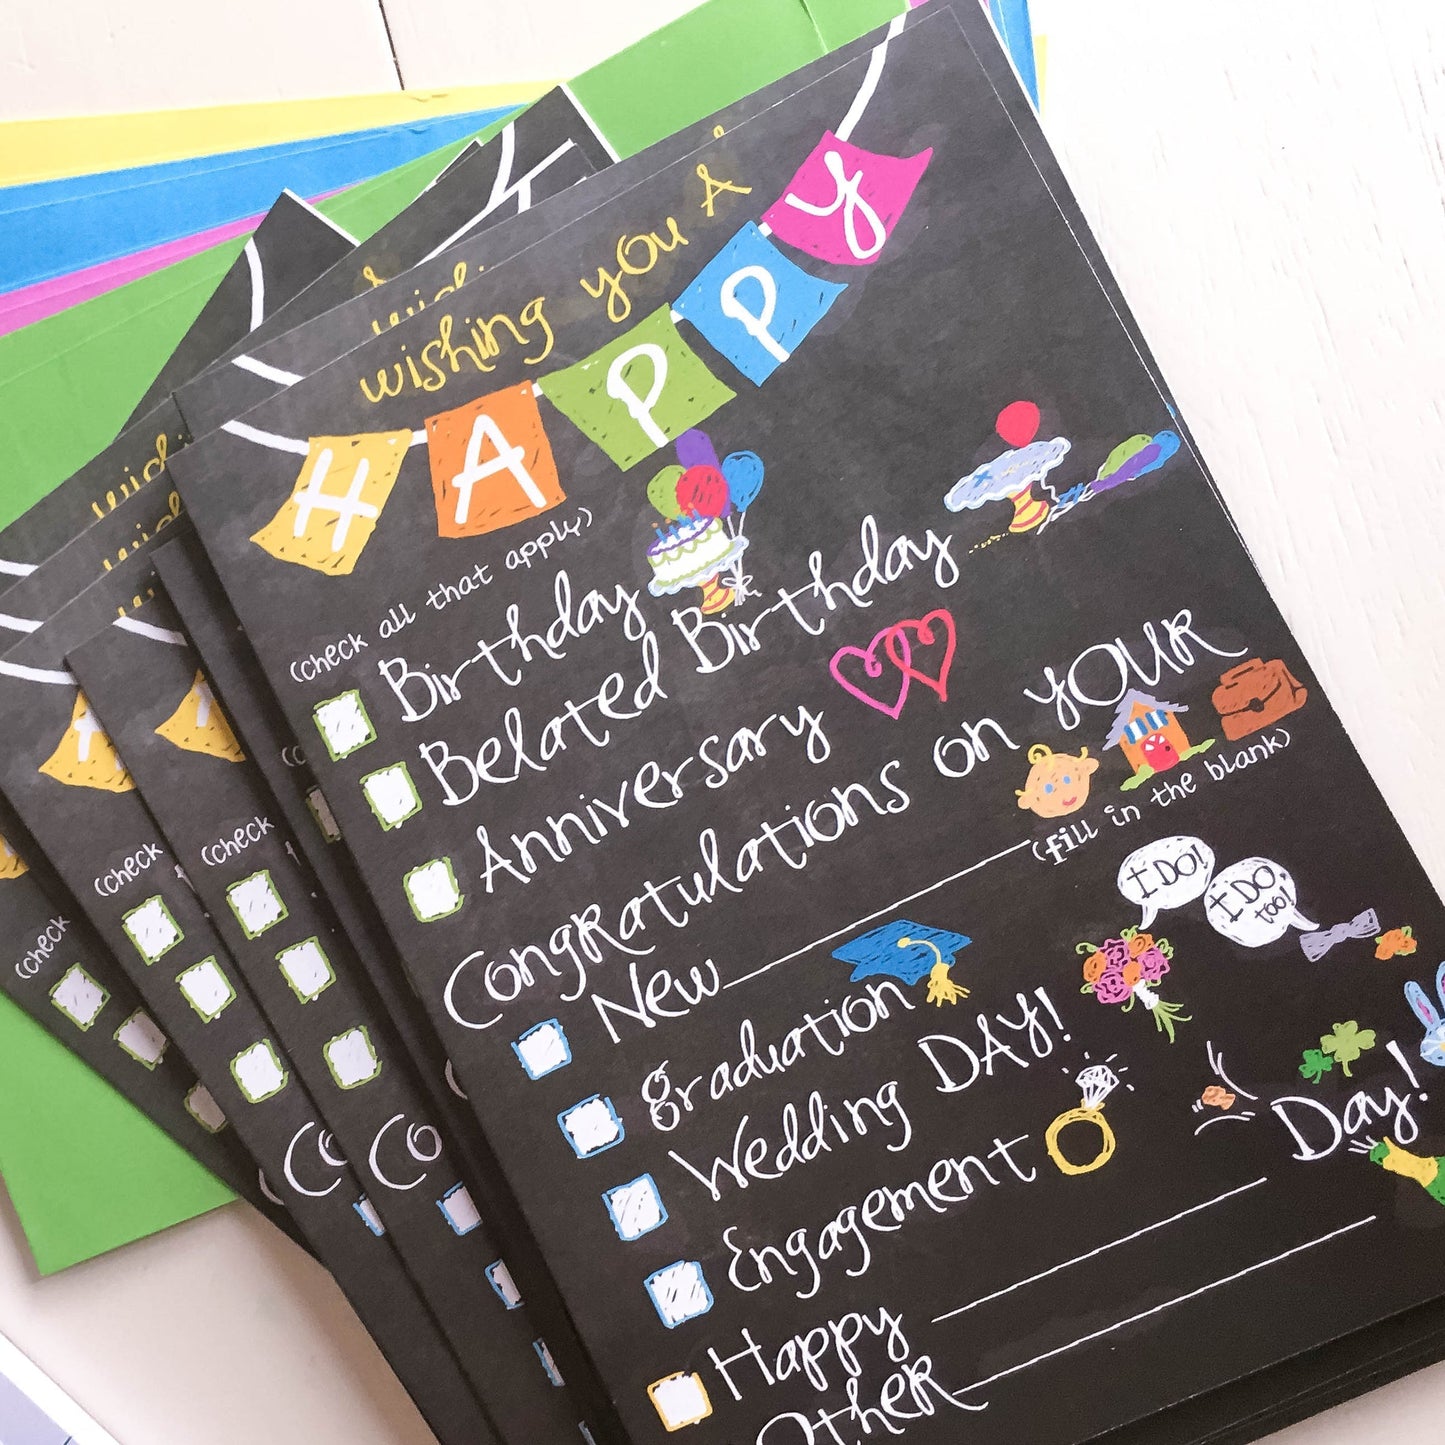 wishing you A
HAPPY
(check all that apply)
Birthday
Belated Birthday
Anniversary
Congratulations on YOUR
New (fill in the blank)
Graduation
Wedding DAY!
I DO!
I DO too!
Engagement
Happy Day!
Other
wishing
(check
(check
(check